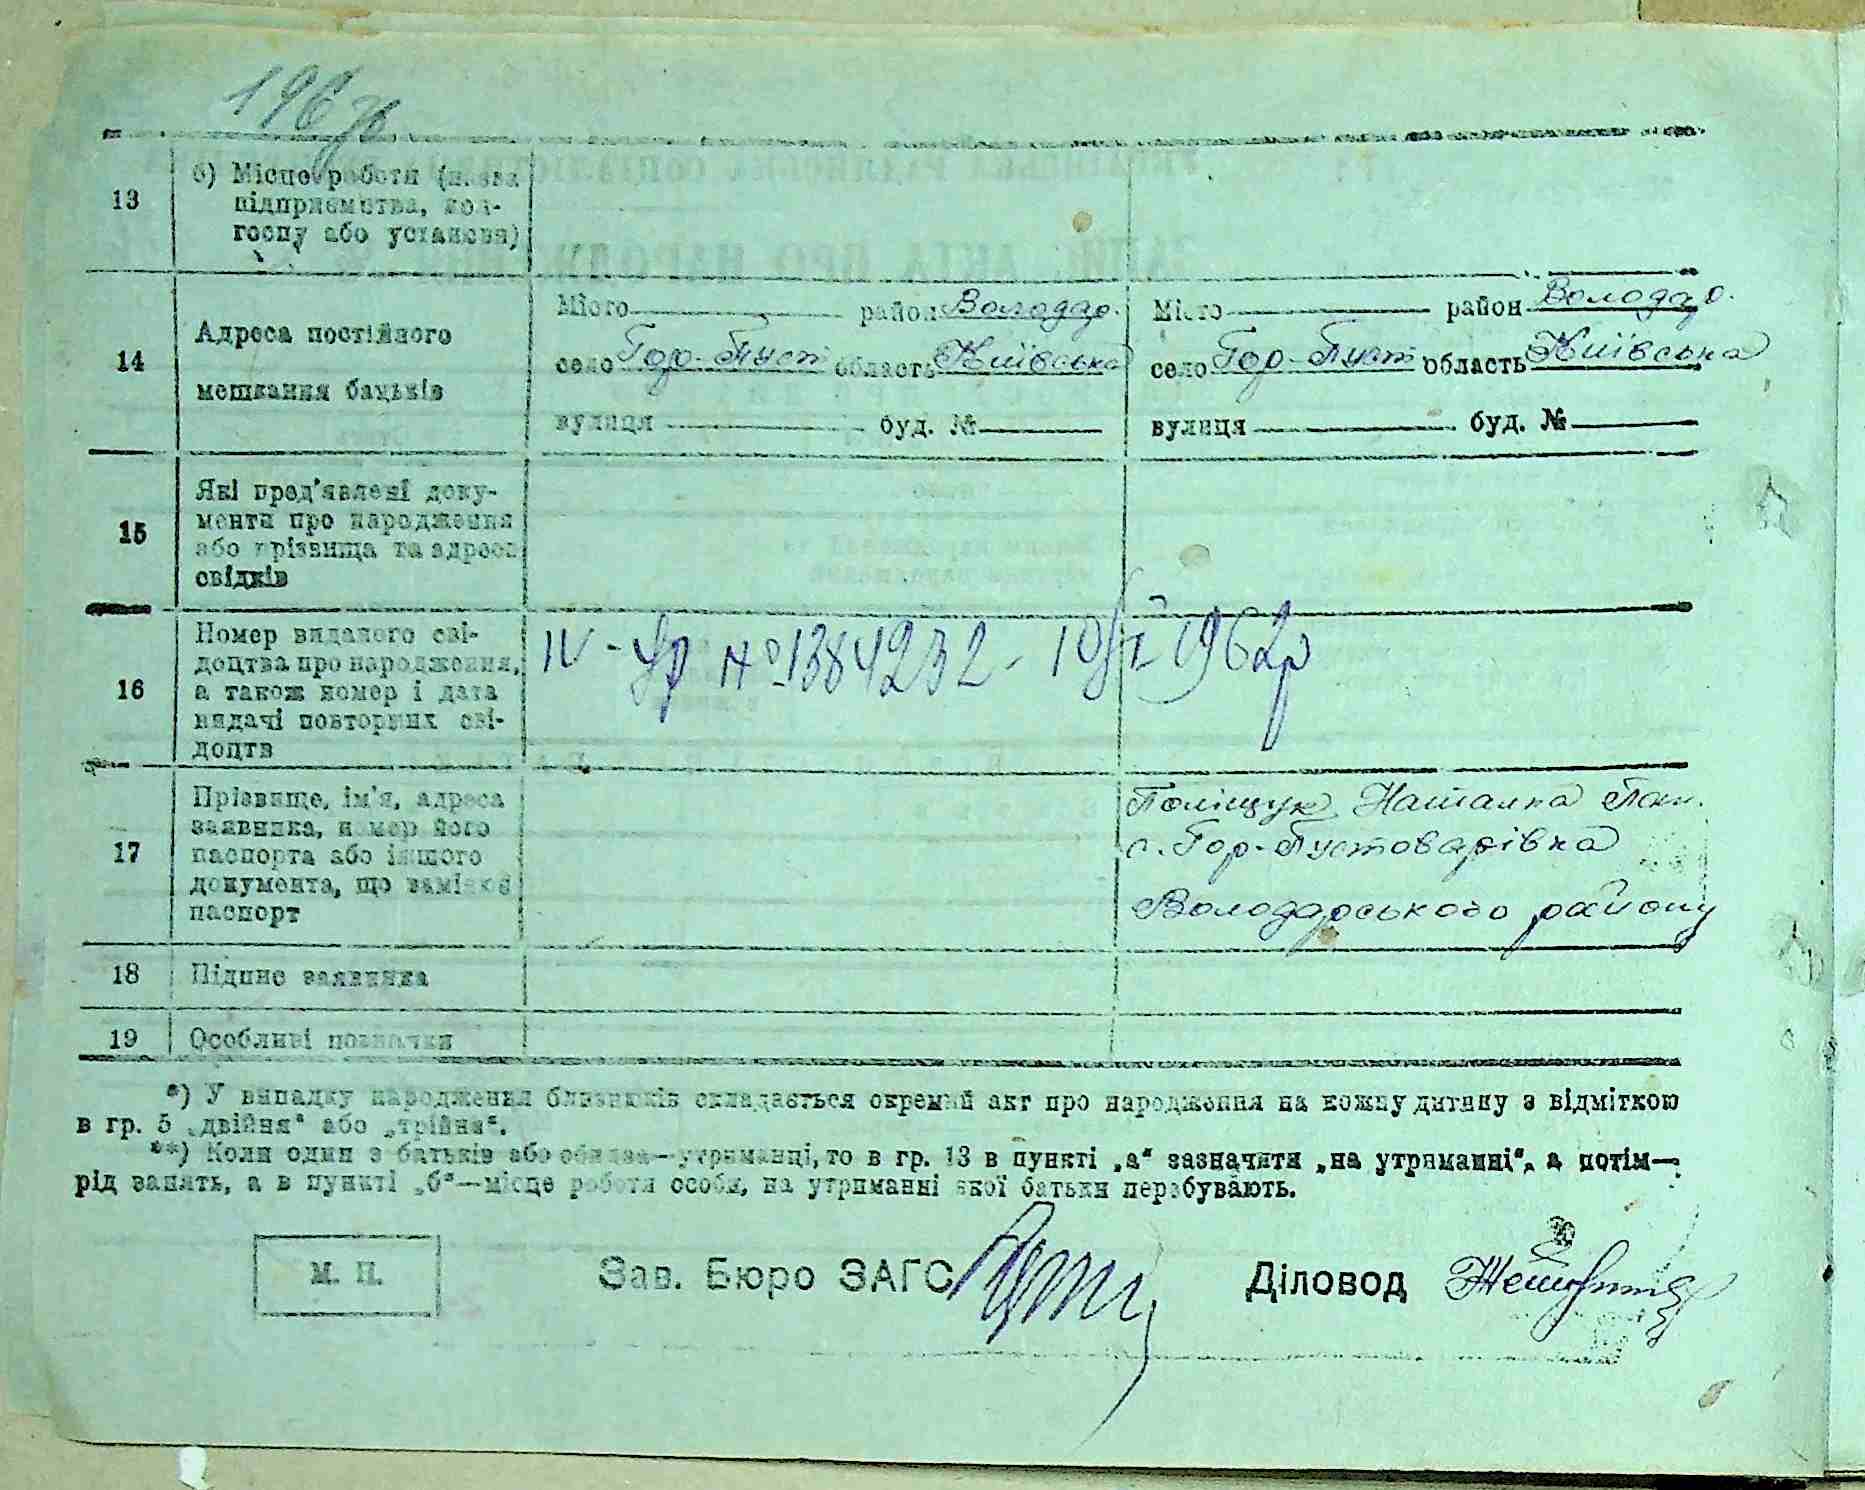 196 зв
13
б) Місце роботи (назва
підприємства, кол-
госпу або установи)
14
Адреса постійного
мешкання батьків
Місто район Володар. Місто район Володар.
село Гор-Пуст область Київська село Гор-Пуст область Київська
вулиця буд. № вулиця буд. №
15
Які пред'явлені доку-
менти про народження
або прізвища та адреса
свідків
16
Номер виданого сві-
доцтва про народження,
а також номер і дата
видачі повторних сві-
доцтв
IV-УР №1384232 - 10/I 1962р
17
Прізвище, ім'я, адреса
заявника, номер його
паспорта або іншого
документа, що заміняє
паспорт
Поліщук Наталка Пан.
с. Гор-Пустоварівка
Володарського району
18 Підпис заявника
19 Особливі позначки
*) У випадку народження близнюків складається окремий акт про народження на кожну дитину з відміткою
в гр. 5 „двійня“ або „трійня“.
**) Коли один з батьків або обидва—утриманці, то в гр. 13 в пункті „а“ зазначити „на утриманні“, а потім—
рід занять, а в пункті „б“—місце роботи особи, на утриманні якої батьки перебувають.
М. П. Зав. Бюро ЗАГС Діловод